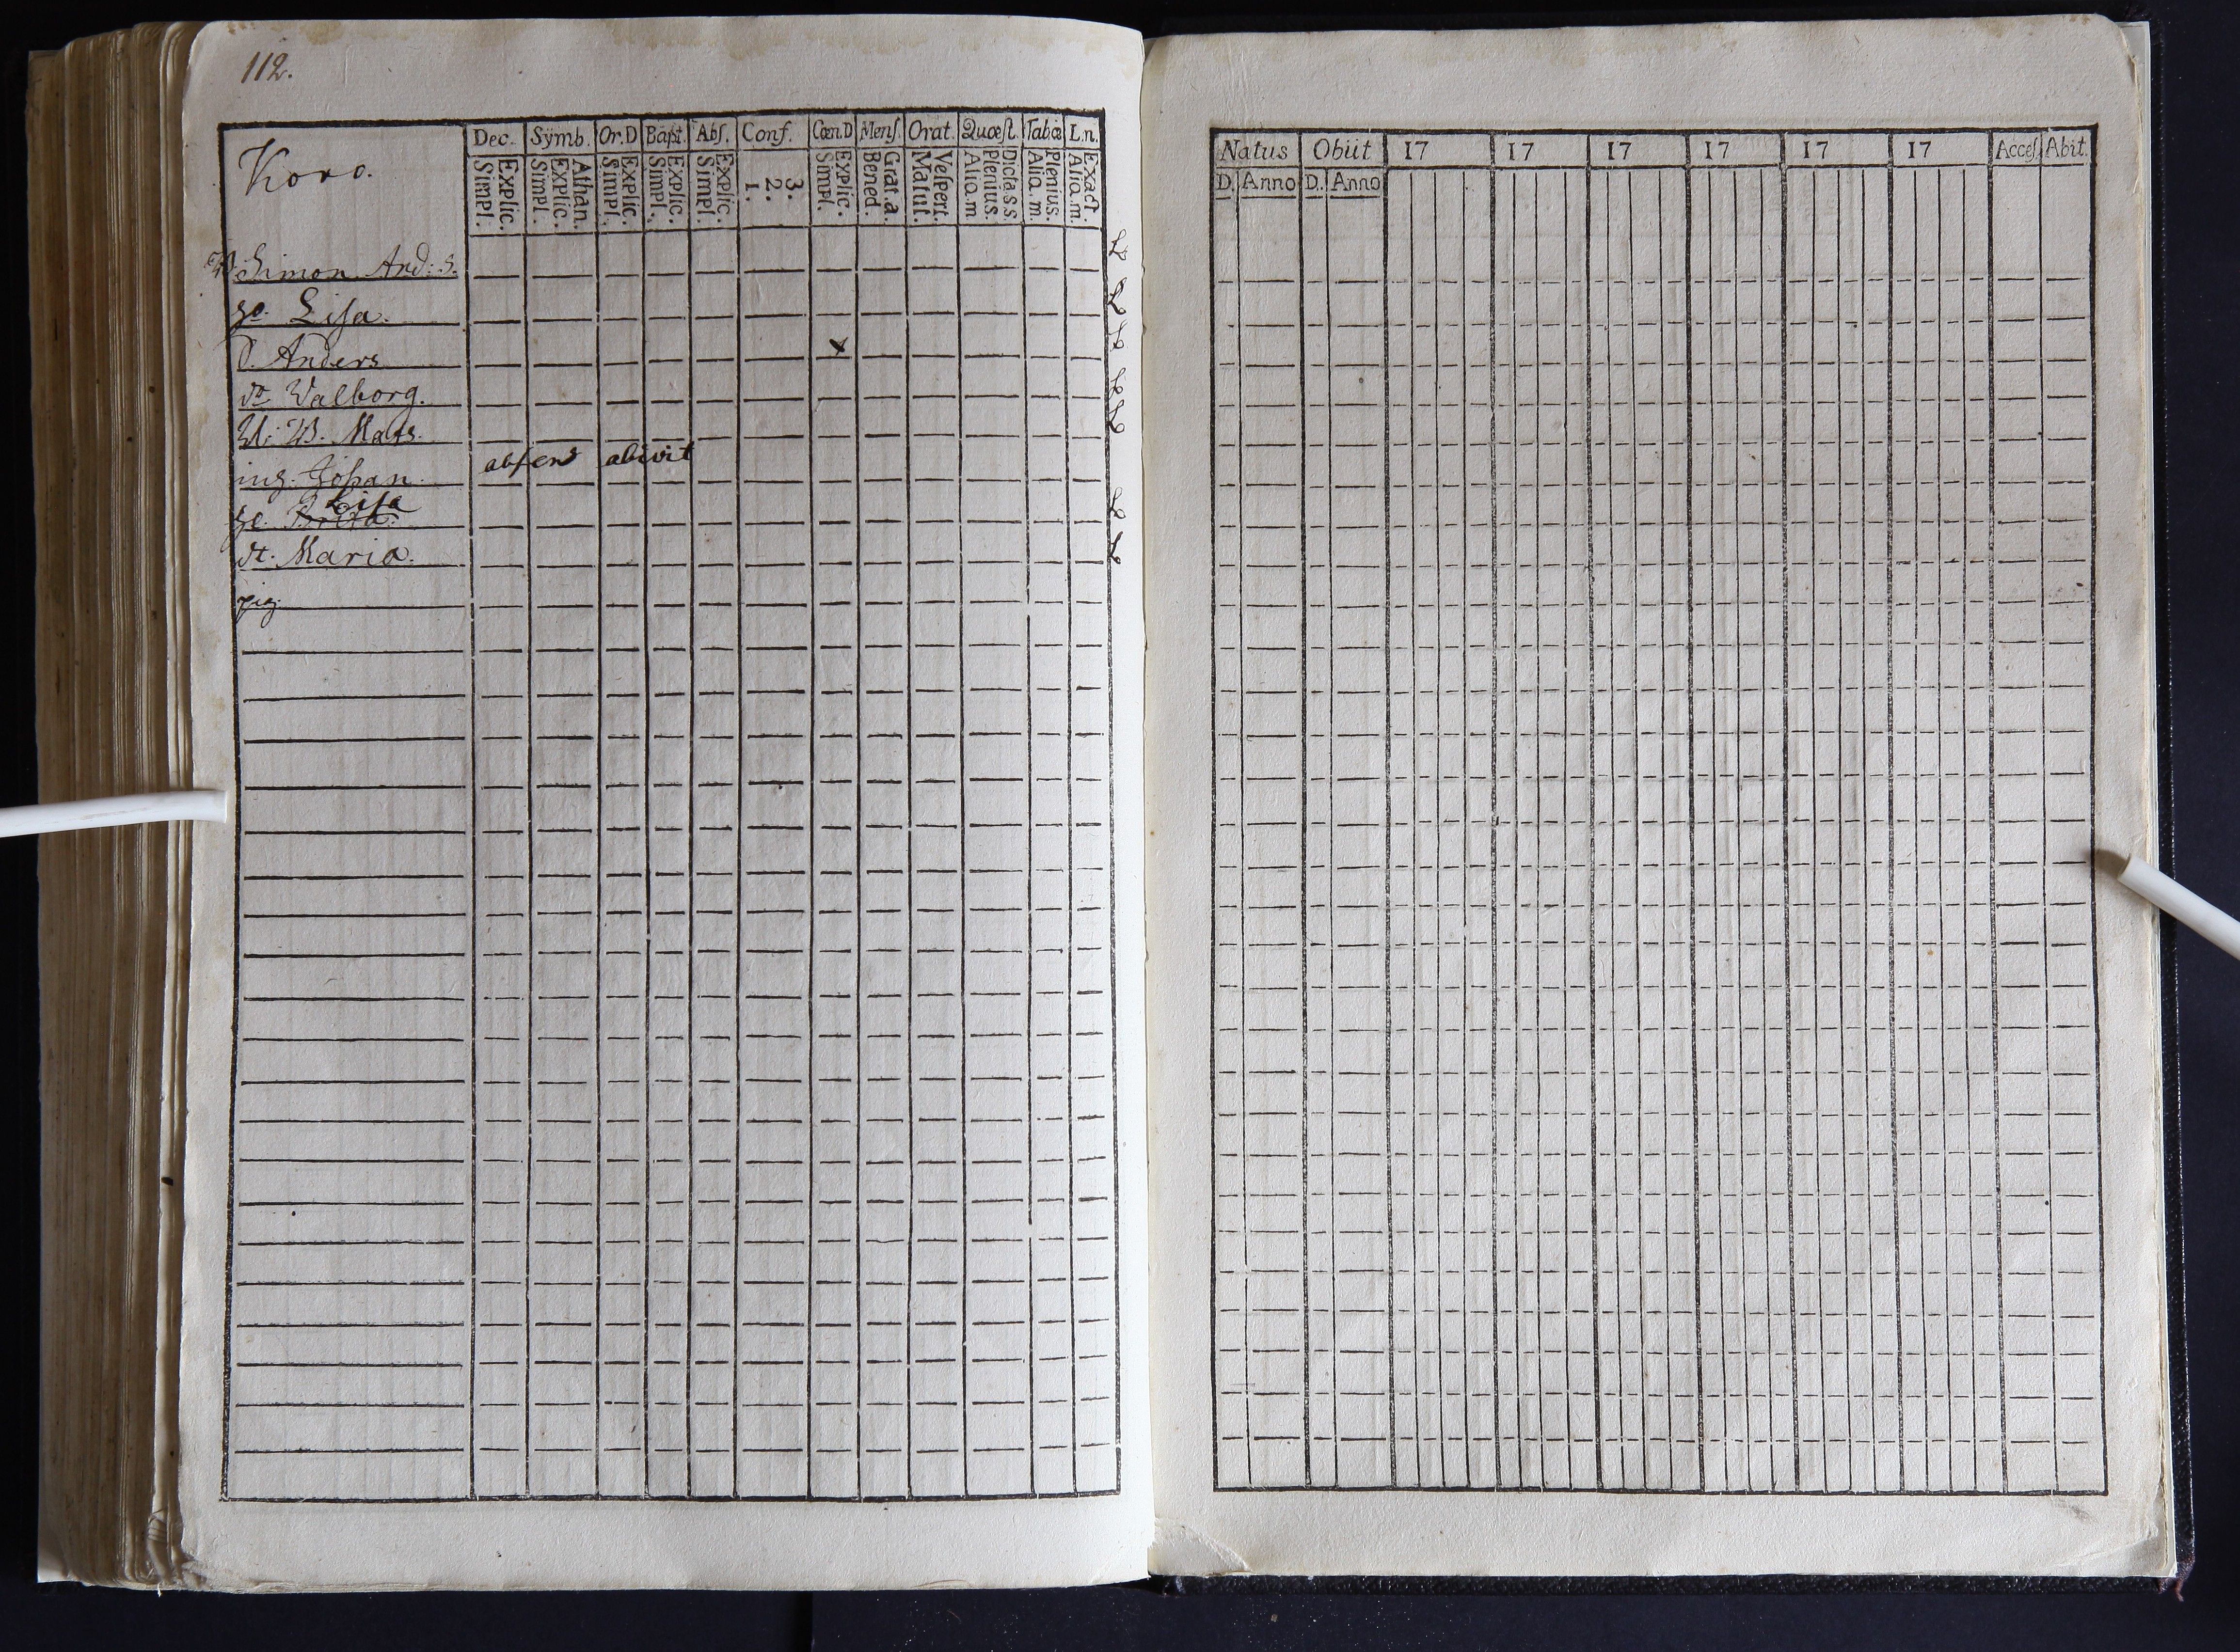 112.
Koro.
Dec. Sÿmb. Or.D Bapt. Abſ. Conf. Cœn.D Menſ. Orat. Quœſt. Tabœ L.n.
Simpl. Explic. Simpl. Explic. Athan. Simpl. Explic. Simpl. Explic. Simpl. Explic. 1. 2. 3. Simpl. Explic. Bened. Grat.a. Matut. Veſpert. Alia.m. Plenius. Dicta.s.s. Alia.m. Plenius. Alia.m. Exact.
Simon And: s.
Liſa.
Anders
Walborg.
Mats.
Johan absens abivit
Liſa
Brita.
Maria.
pig
Natus Obiit 17 17 17 17 17 17 Acceſ. Abit.
D. Anno D. Anno